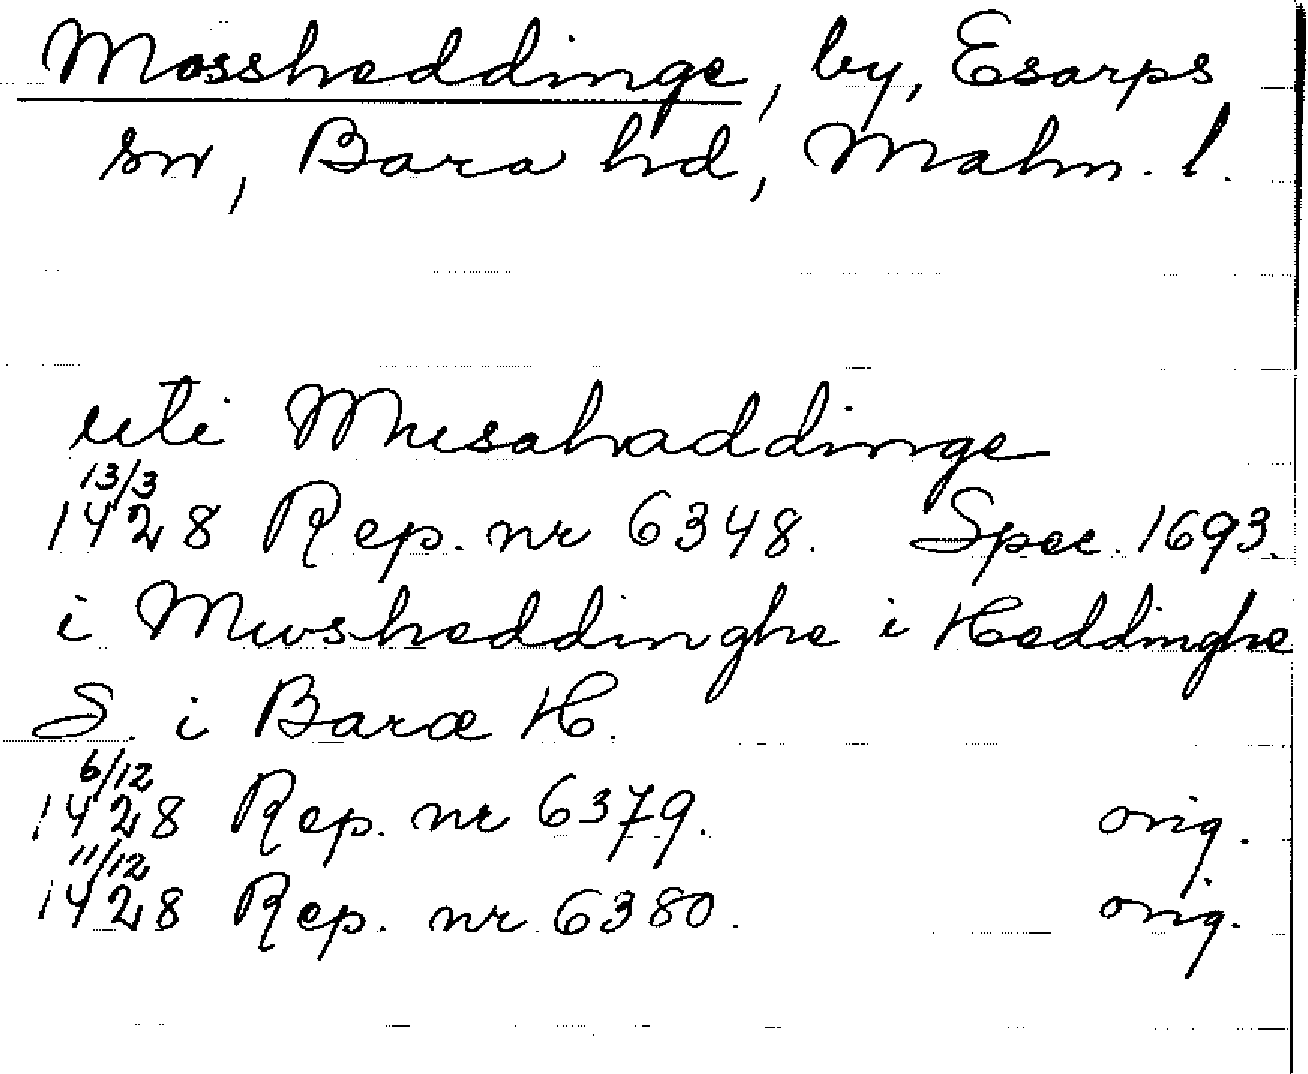 Mossheddinge, by, Esarps
sn, Bara hd, Malm. l.
uti Musahaddinge
13/3
1428 Rep. nr 6348. Spec. 1693.
i Mwsheddinghe i Heddinghe
S. i Baræ H.
6/12
1428 Rep. nr 6379. orig.
11/12
1428 Rep. nr 6380. orig.